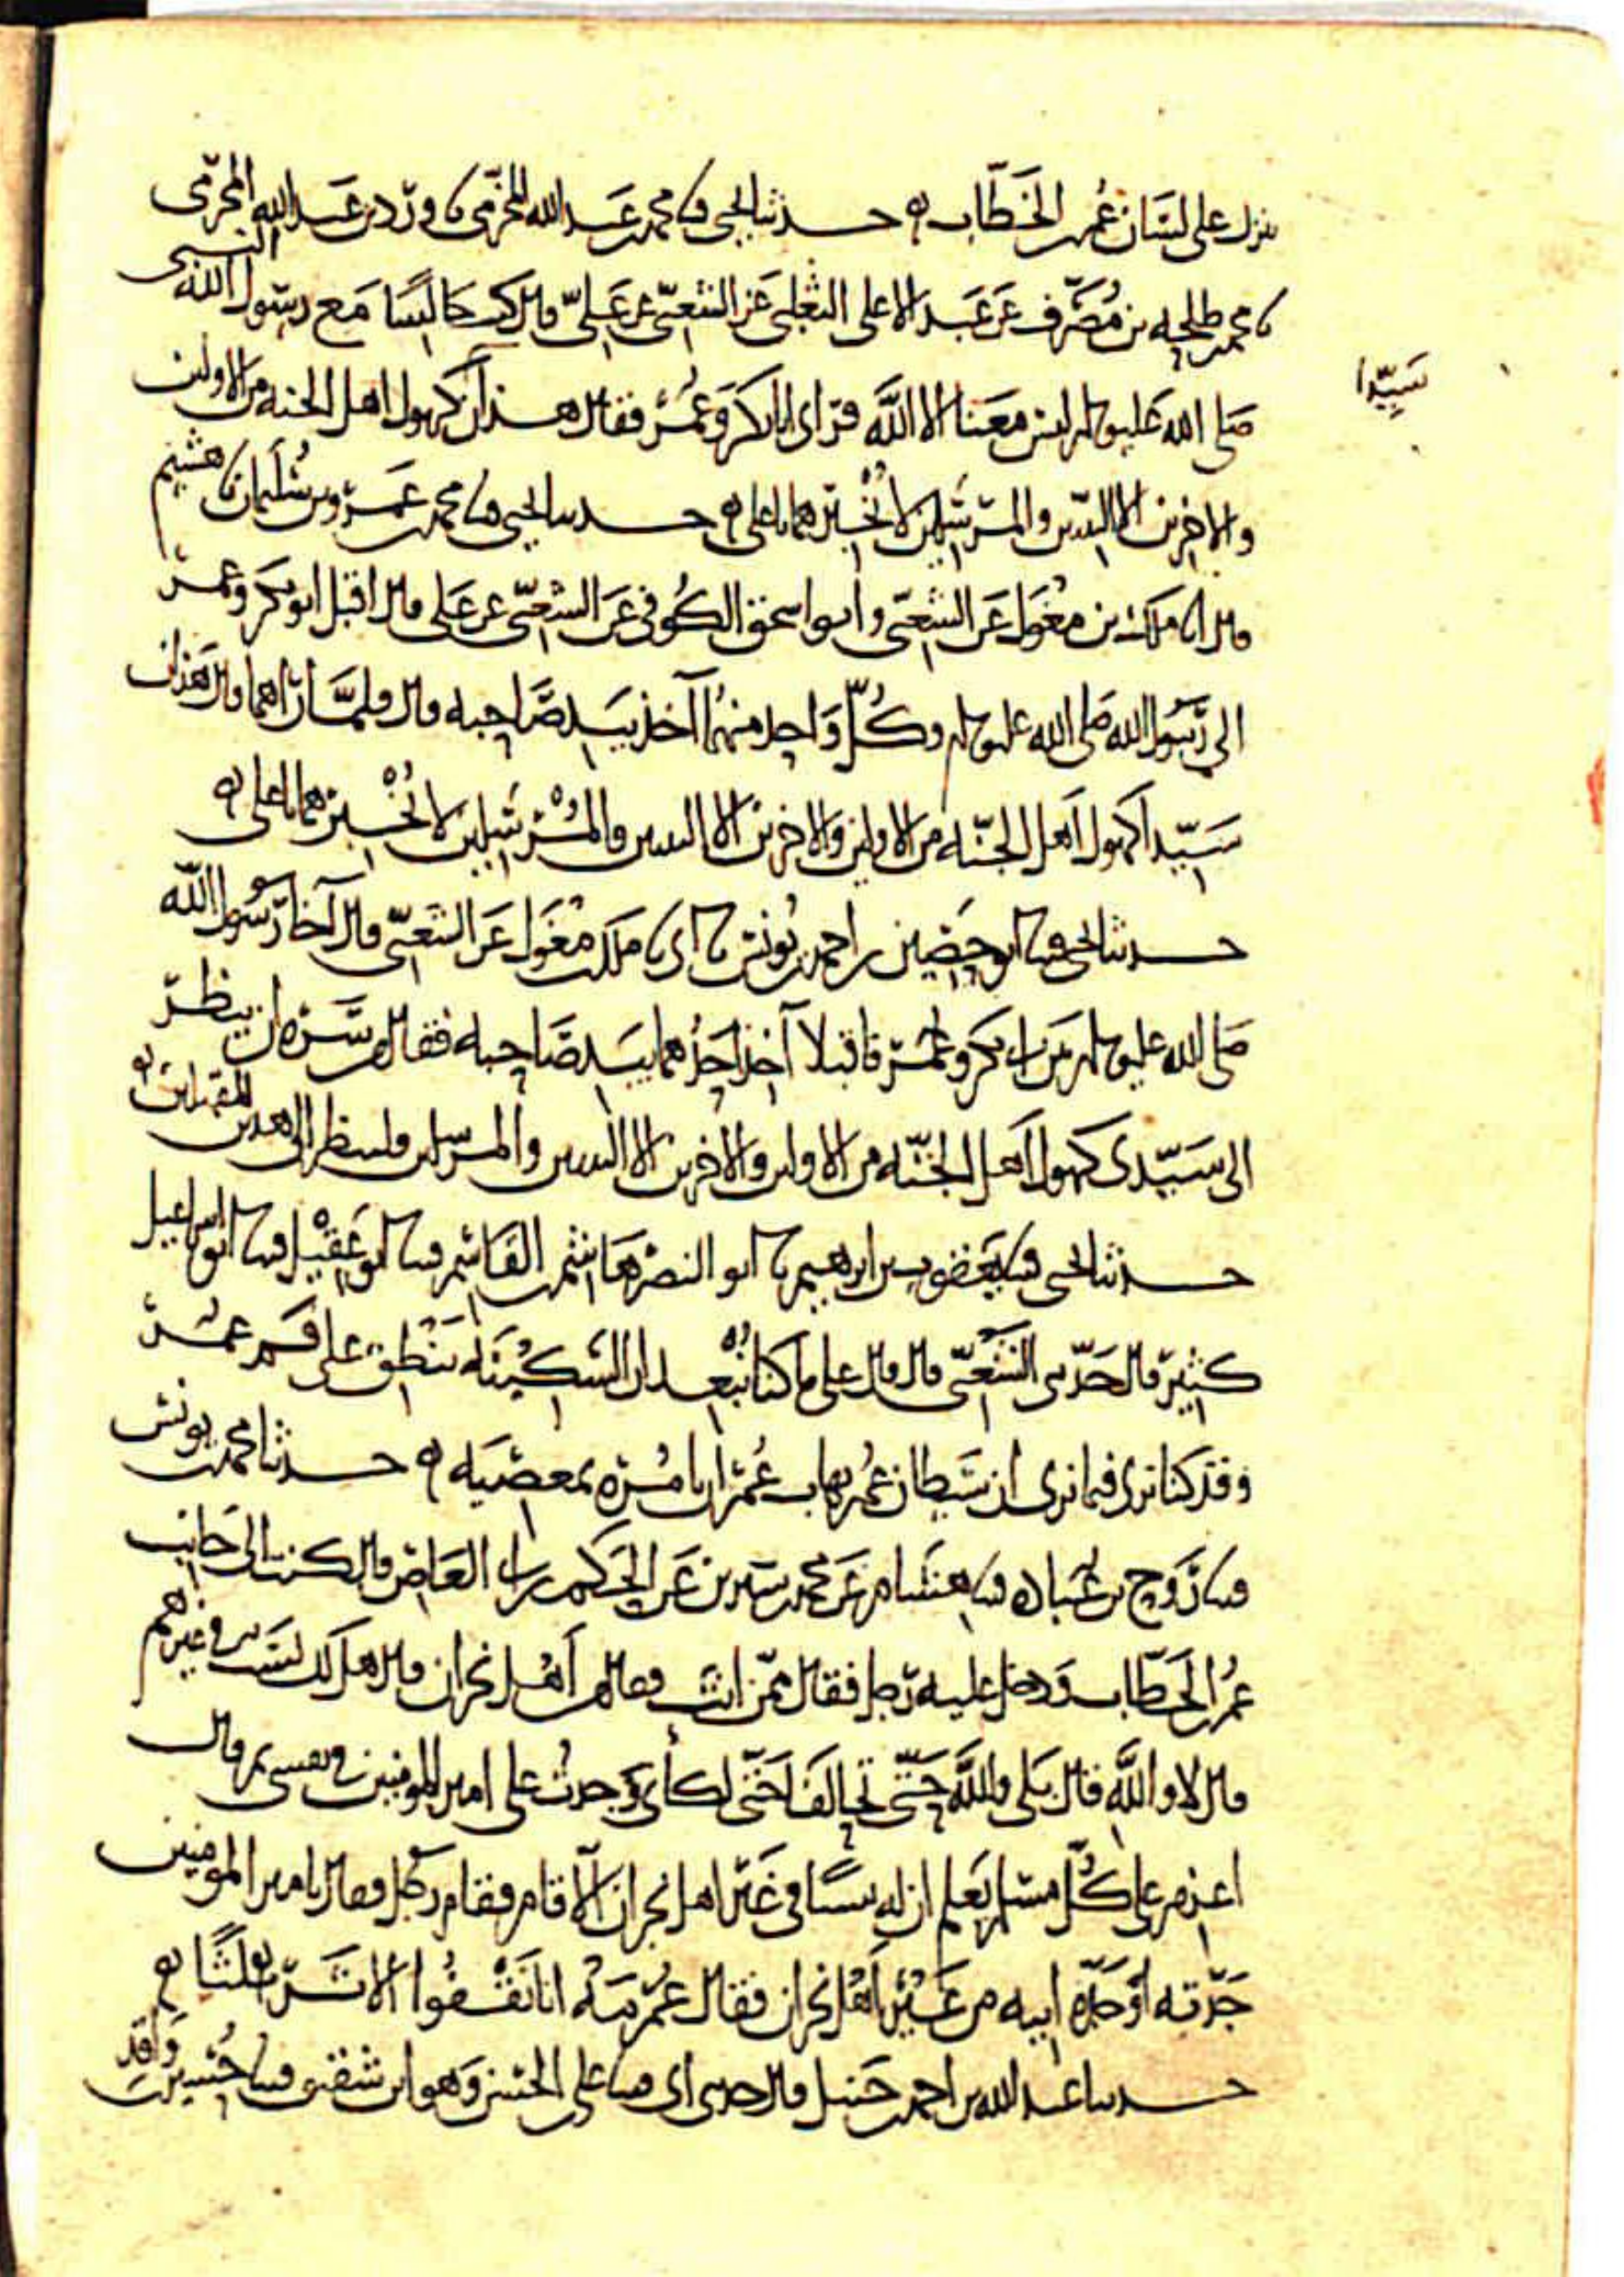 ينزل على لسان عمر الخطاب ه حدثنا يحيى قثنا محمد بن عبد الله المخرمي نا ورد بن عبد الله المخرمي
نا محمد طلحه بن مصرف عن عبد الاعلى الثعلبي عن الشعبي عن علي قال كنت جالسا مع رسول الله النبي
سيدا
صلى الله عليه وسلم ليس معنا الا الله فراى ابا بكر وعمر فقال هذان كهول اهل الجنه من الاولين
والاخرين الا النبيين والمرسلين لا تخبرهما يا علي ه حدثنا يحيى قثنا محمد بن عمرو بن سليمان نا هشيم
قال انا ملك بن مغول عن الشعبي وابو اسحق الكوفي عن الشعبي عن علي قال اقبل ابو بكر وعمر
الى رسول الله صلى الله عليه وسلم وكل واحد منهما آخذ بيد صاحبه قال فلما راهما قال هذان
سيدا كهول اهل الجنه من الاولين والاخرين الا النبيين والمرسلين لا تخبرهما يا علي ه
حدثنا يحيى قثنا ابو حصين بن احمد بن يونس نا ابي نا ملك مغول عن الشعبي قال آخا رسول الله
صلى الله عليه وسلم بين ابي بكر وعمر فاقبلا آخذ احدهما بيد صاحبه فقال من سره ان ينظر
الى سيدي كهول اهل الجنه من الاولين والاخرين الا النبيين والمرسلين فلينظر الى هذين المقبلين ه
حدثنا يحيى قثنا يعقوب بن ابراهيم نا ابو النضر هاشم بن القاسم قثنا ابو عقيل قثنا ابو اسماعيل
كثير قال حدثني الشعبي قال قال علي ما كنا نبعد ان السكينه تنطق على فم عمر
وقد كنا نرى فيما نرى ان شيطان عمر يهاب عمر ان يامره بمعصيه ه حدثنا محمد بن يونس
قثنا روح بن عباده قثنا هشام عن محمد بن سيرين عن الحكم بن ابي العاص قال كنت الى جانب
عمر الخطاب ودخل عليه رجل فقال ممن انت فقال من اهل نجران قال هل لك نسب في غيرهم
قال لا والله قال بلى والله حتى تحالفا حتى لكأني وجدت على امير المومنين في نفسي ثم قال
اعزم على كل مسلم يعلم ان له نسبا في غير اهل نجران الا قام فقام رجل فقال يا امير المومنين
جدته او جدة ابيه من غير اهل نجران فقال عمر مه انا نقفوا الاثر ثلثا ه
حدثنا عبد الله بن احمد حنبل قال حدثني ابي قثنا علي الحسن وهو ابن شقيق قثنا حسين بن واقد